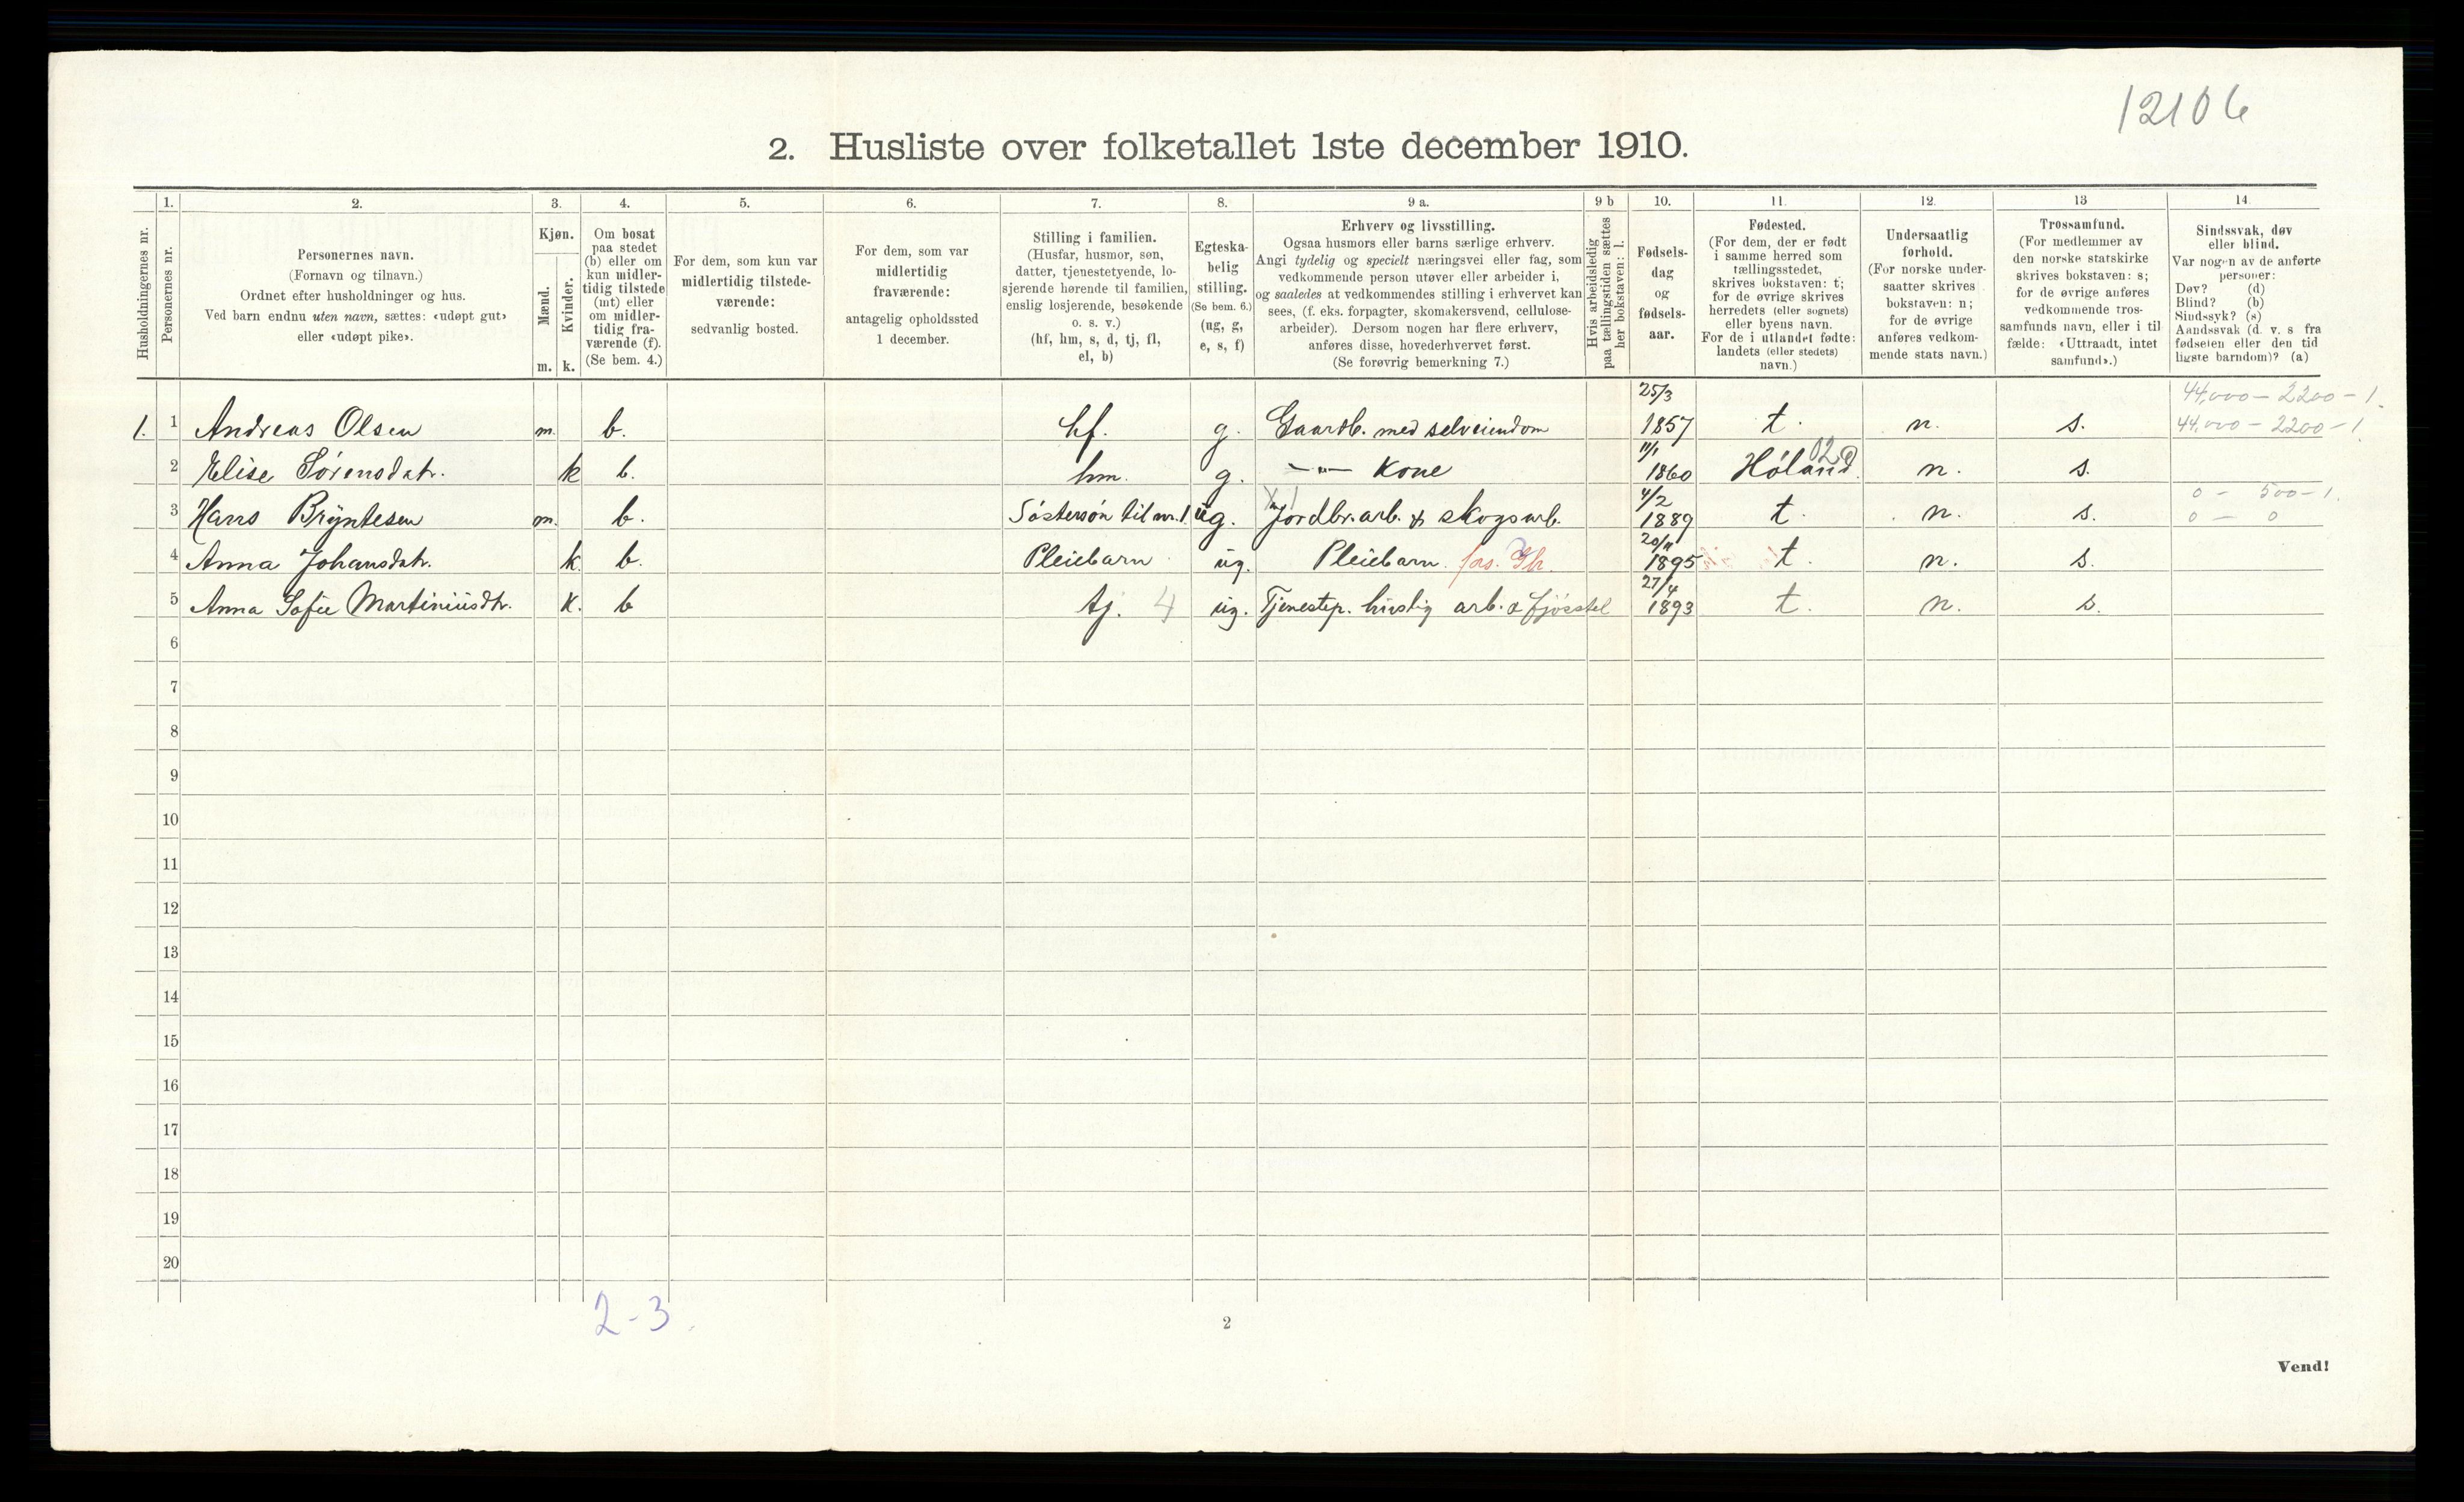 12106
2. Husliste over folketallet 1ste december 1910.
Husholdningernes nr.
1.
Personernes nr.
2.
Personernes navn.
(Fornavn og tilnavn.)
Ordnet efter husholdninger og hus.
Ved barn endnu uten navn, sættes: «udøpt gut»
eller «udøpt pike».
3.
Kjøn.
Mænd.
Kvinder.
m. k.
4.
Om bosat
paa stedet
(b) eller om
kun midler-
tidig tilstede
(mt) eller
om midler-
tidig fra-
værende (f).
(Se bem. 4.)
5.
For dem, som kun var
midlertidig tilstede-
værende:
sedvanlig bosted.
6.
For dem, som var
midlertidig
fraværende:
antagelig opholdssted
1 december.
7.
Stilling i familien.
(Husfar, husmor, søn,
datter, tjenestetyende, lo-
sjerende hørende til familien,
enslig losjerende, besøkende
o. s. v.)
(hf, hm, s, d, tj, fl,
el, b)
8.
Egteska-
belig
stilling.
(Se bem. 6.)
(ug, g,
e, s, f)
9 a.
Erhverv og livsstilling.
Ogsaa husmors eller barns særlige erhverv.
Angi tydelig og specielt næringsvei eller fag, som
vedkommende person utøver eller arbeider i,
og saaledes at vedkommendes stilling i erhvervet kan
sees, (f. eks. forpagter, skomakersvend, cellulose-
arbeider). Dersom nogen har flere erhverv,
anføres disse, hovederhvervet først.
(Se forøvrig bemerkning 7.)
9 b
Hvis arbeidsledig
paa tællingstiden sættes
her bokstaven: l.
10.
Fødsels-
dag
og
fødsels-
aar.
11.
Fødested.
(For dem, der er født
i samme herred som
tællingsstedet,
skrives bokstaven: t;
for de øvrige skrives
herredets (eller sognets)
eller byens navn.
For de i utlandet fødte:
landets (eller stedets)
navn.)
12.
Undersaatlig
forhold.
(For norske under-
saatter skrives
bokstaven: n;
for de øvrige
anføres vedkom-
mende stats navn.)
13
Trossamfund.
(For medlemmer av
den norske statskirke
skrives bokstaven: s;
for de øvrige anføres
vedkommende tros-
samfunds navn, eller i til
fælde: «Uttraadt, intet
samfund».)
14.
Sindssvak, døv
eller blind.
Var nogen av de anførte
personer:
Døv? (d)
Blind? (b)
Sindssyk? (s)
Aandssvak (d. v. s fra
fødselen eller den tid
ligste barndom)? (a)
44,000 - 2200 - 1.
1. 1 Andreas Olsen m. b. hf. g. Gaardb. med selveiendom 25/3 1857 t. n. s. 44.000 - 2200 - 1.
2 Elise Sørensdatr. k b. hm. g. -"- Kone 11/1 1860 Høland. 02 n. s.
0 - 500 - 1.
3 Hans Bryntesen m. b. Søstersøn til nr. 1 ug. Jordbr. arb. & skogsarb. 4/2 1889 t. n. s. 0 - 0
4 Anna Johansdatr. k. b. Pleiebarn ug. Pleiebarn. fors. Gb. 20/11 1895 t. n. s.
5 Anna Sofie Martiniusdtr. k. b tj. 4 ug. Tjenestep. huslig arb. & fjøsstel 27/4 1893 t. n. s.
6
7
8
9
10
11
12
13
14
15
16
17
18
19
20
2-3.
2
Vend!